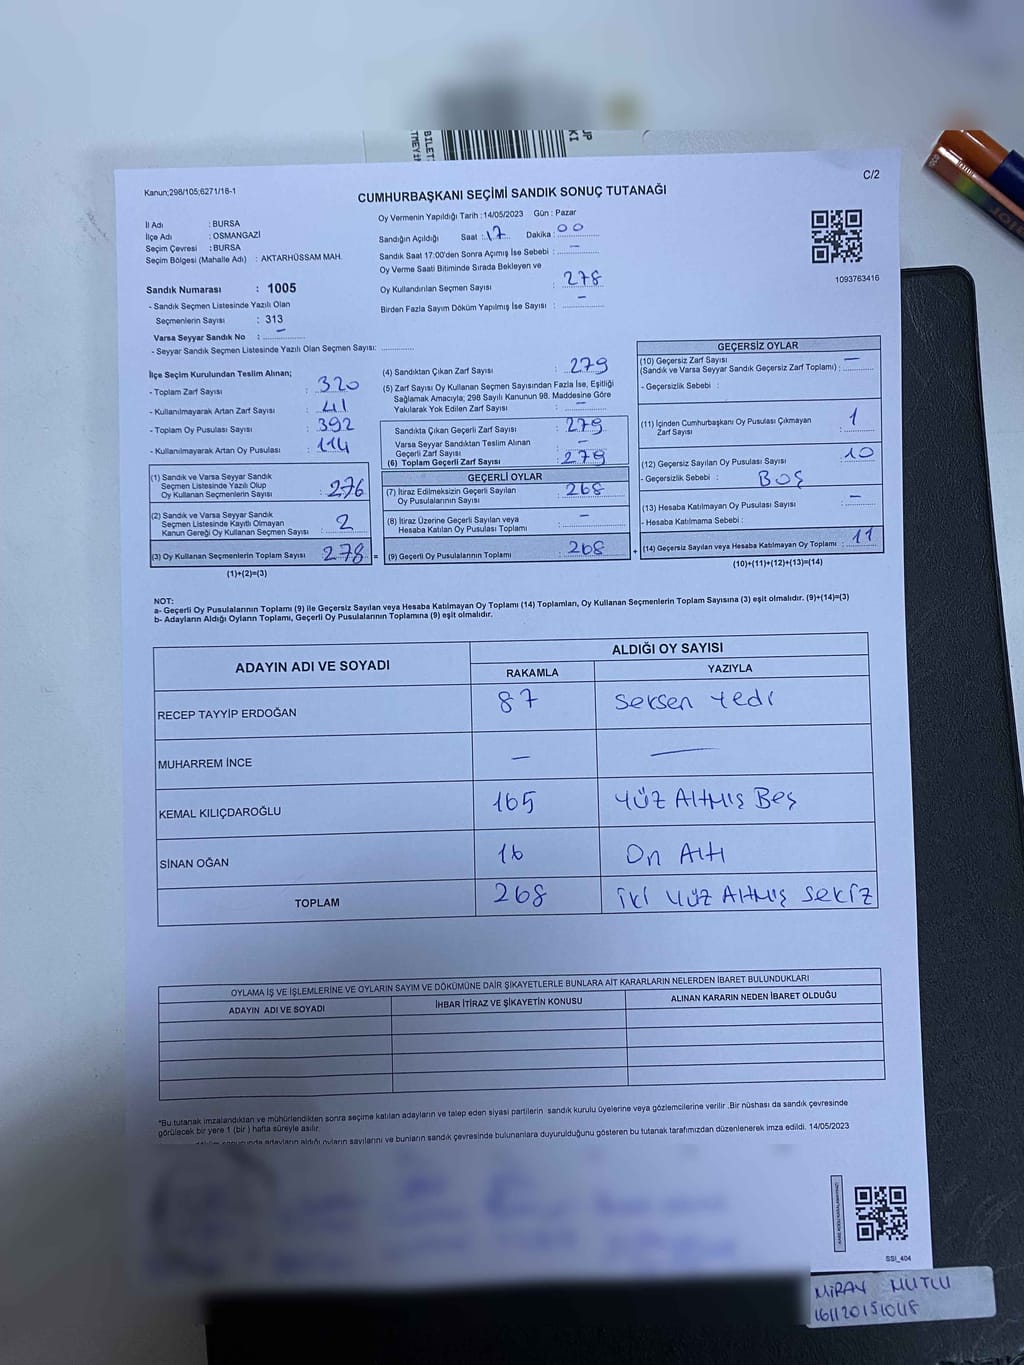 BILET
TMEYİ
JP
Kİ
C/2
Kanun;298/105;6271/16-1
CUMHURBAŞKANI SEÇİMİ SANDIK SONUÇ TUTANAĞI
İl Adı : BURSA
İlçe Adı : OSMANGAZİ
Seçim Çevresi : BURSA
Seçim Bölgesi (Mahalle Adı) : AKTARHÜSSAM MAH.
Sandık Numarası : 1005
- Sandık Seçmen Listesinde Yazılı Olan
Seçmenlerin Sayısı : 313
Varsa Seyyar Sandık No : —
- Seyyar Sandık Seçmen Listesinde Yazılı Olan Seçmen Sayısı: ..............
Oy Vermenin Yapıldığı Tarih : 14/05/2023 Gün : Pazar
Sandığın Açıldığı Saat : 17 Dakika : 00
Sandık Saat 17:00'den Sonra Açımış İse Sebebi : —
Oy Verme Saati Bitiminde Sırada Bekleyen ve
Oy Kullandırılan Seçmen Sayısı : 278
Birden Fazla Sayım Döküm Yapılmış İse Sayısı : —
1093763416
İlçe Seçim Kurulundan Teslim Alınan;
- Toplam Zarf Sayısı : 320
- Kullanılmayarak Artan Zarf Sayısı : 41
- Toplam Oy Pusulası Sayısı : 392
- Kullanılmayarak Artan Oy Pusulası : 114
(1) Sandık ve Varsa Seyyar Sandık
Seçmen Listesinde Yazılı Olup
Oy Kullanan Seçmenlerin Sayısı : 276
(2) Sandık ve Varsa Seyyar Sandık
Seçmen Listesinde Kayıtlı Olmayan
Kanun Gereği Oy Kullanan Seçmen Sayısı : 2
(3) Oy Kullanan Seçmenlerin Toplam Sayısı : 278 =
(1)+(2)=(3)
(4) Sandıktan Çıkan Zarf Sayısı : 279
(5) Zarf Sayısı Oy Kullanan Seçmen Sayısından Fazla İse, Eşitliği
Sağlamak Amacıyla; 298 Sayılı Kanunun 98. Maddesine Göre
Yakılarak Yok Edilen Zarf Sayısı : —
Sandıkta Çıkan Geçerli Zarf Sayısı : 279
Varsa Seyyar Sandıktan Teslim Alınan
Geçerli Zarf Sayısı : —
(6) Toplam Geçerli Zarf Sayısı : 279
GEÇERLİ OYLAR
(7) İtiraz Edilmeksizin Geçerli Sayılan
Oy Pusulalarının Sayısı : 268
(8) İtiraz Üzerine Geçerli Sayılan veya
Hesaba Katılan Oy Pusulası Toplamı : —
(9) Geçerli Oy Pusulalarının Toplamı : 268 +
GEÇERSİZ OYLAR
(10) Geçersiz Zarf Sayısı —
(Sandık ve Varsa Seyyar Sandık Geçersiz Zarf Toplamı) :
- Geçersizlik Sebebi :
(11) İçinden Cumhurbaşkanı Oy Pusulası Çıkmayan
Zarf Sayısı : 1
(12) Geçersiz Sayılan Oy Pusulası Sayısı : 10
- Geçersizlik Sebebi : BOŞ
(13) Hesaba Katılmayan Oy Pusulası Sayısı : —
- Hesaba Katılmama Sebebi :
(14) Geçersiz Sayılan veya Hesaba Katılmayan Oy Toplamı : 11
(10)+(11)+(12)+(13)=(14)
NOT:
a- Geçerli Oy Pusulalarının Toplamı (9) ile Geçersiz Sayılan veya Hesaba Katılmayan Oy Toplamı (14) Toplamları, Oy Kullanan Seçmenlerin Toplam Sayısına (3) eşit olmalıdır. (9)+(14)=(3)
b- Adayların Aldığı Oyların Toplamı, Geçerli Oy Pusulalarının Toplamına (9) eşit olmalıdır.
ADAYIN ADI VE SOYADI ALDIĞI OY SAYISI
RAKAMLA YAZIYLA
RECEP TAYYİP ERDOĞAN 87 Seksen Yedi
MUHARREM İNCE — —
KEMAL KILIÇDAROĞLU 165 YÜZ ALTMIŞ BEŞ
SİNAN OĞAN 16 On Altı
TOPLAM 268 İki YÜZ ALTMIŞ Sekiz
OYLAMA İŞ VE İŞLEMLERİNE VE OYLARIN SAYIM VE DÖKÜMÜNE DAİR ŞİKAYETLERLE BUNLARA AİT KARARLARIN NELERDEN İBARET BULUNDUKLARI
ADAYIN ADI VE SOYADI İHBAR İTİRAZ VE ŞİKAYETİN KONUSU ALINAN KARARIN NEDEN İBARET OLDUĞU
*Bu tutanak imzalandıktan ve mühürlendikten sonra seçime katılan adayların ve talep eden siyasi partilerin sandık kurulu üyelerine veya gözlemcilerine verilir .Bir nüshası da sandık çevresinde
görülecek bir yere 1 (bir ) hafta süreyle asılır.
adayların aldığı oyların sayılarını ve bunların sandık çevresinde bulunanlara duyurulduğunu gösteren bu tutanak tarafımızdan düzenlenerek imza edildi. 14/05/2023
SSİ_404
MİRAY MUTLU